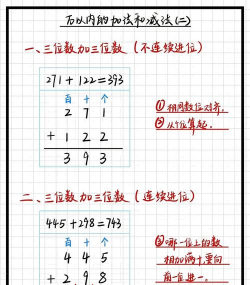 万以内的加法和减法(二)
一、三位数加三位数(不连续进位)
271+122=393
百 十 个
2 7 1
+ 1 2 2
3 9 3
①相同数位对齐.
②从个位算起.
二、三位数加三位数(连续进位)
445+298=743
百 十 个
4 4 5
+ 2 9 8
③哪一位上的数
相加满十,要向
前一位进一.